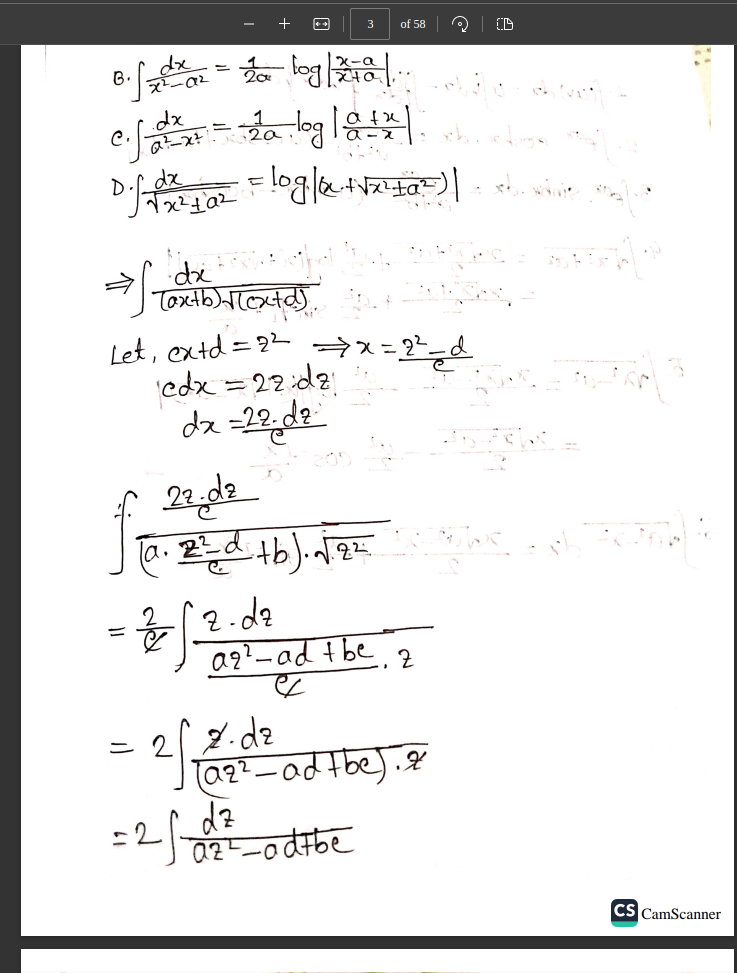 3 of 58
B. ∫ dx/(x²-a²) = 1/2a log|(x-a)/(x+a)|..
C. ∫ dx/(a²-x²) = 1/2a .log|(a+x)/(a-x)|
D. ∫ dx/√(x²±a²) = log|(x+√(x²±a²))|
⇒ ∫ dx/((ax+b)√(cx+d))
Let, cx+d = z² ⇒ x = (z²-d)/c
cdx = 2z.dz
dx = 2z.dz/c
∫ (2z.dz/c)/((a. (z²-d)/c +b).√z²)
= 2/c ∫ z.dz/((az²-ad+bc)/c . z)
= 2 ∫ z.dz/((az²-ad+bc).z)
= 2 ∫ dz/(az²-ad+bc)
CS CamScanner